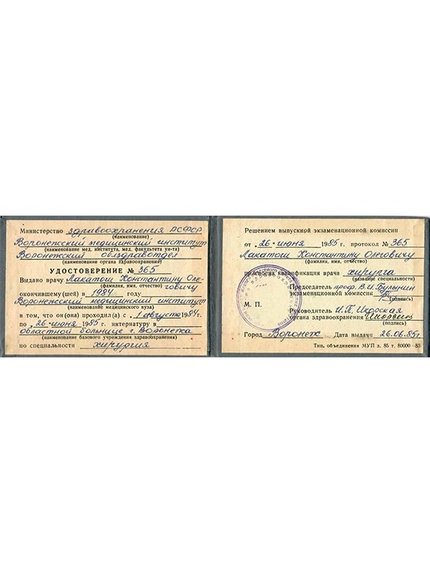 Министерство здравоохранения РСФСР
(наименование)
Воронежский медицинский институт
(наименование мед. института, мед. факультета ун-та)
Воронежский облздравотдел
(наименование органа здравоохранения)
УДОСТОВЕРЕНИЕ № 365
Выдано врачу Лакатош Константину Оле-
говичу
(фамилия, имя, отчество)
окончившему (шей) в 1984 году
Воронежский медицинский институт
(наименование медицинского вуза)
в том, что он (она) проходил (а) с 1 августа 1984
по 26 июня 1985 г. интернатуру в
областной больнице г. Воронежа
(наименование базового учреждения здравоохранения)
по специальности хирургия
Решением выпускной экзаменационной комиссии
от 26 июня 1985 г. протокол № 365
Лакатошу Константину Олеговичу
(фамилия, имя, отчество)
присвоена квалификация врача хирурга
(название специальности)
Председатель проф. В.И. Булынин
экзаменационной комиссии
(подпись)
М. П.
Руководитель И.П.
органа здравоохранения
(подпись)
Город Воронеж Дата выдачи 26.06.85г.
Тип. объединения МУП з. 85 т. 80000—83